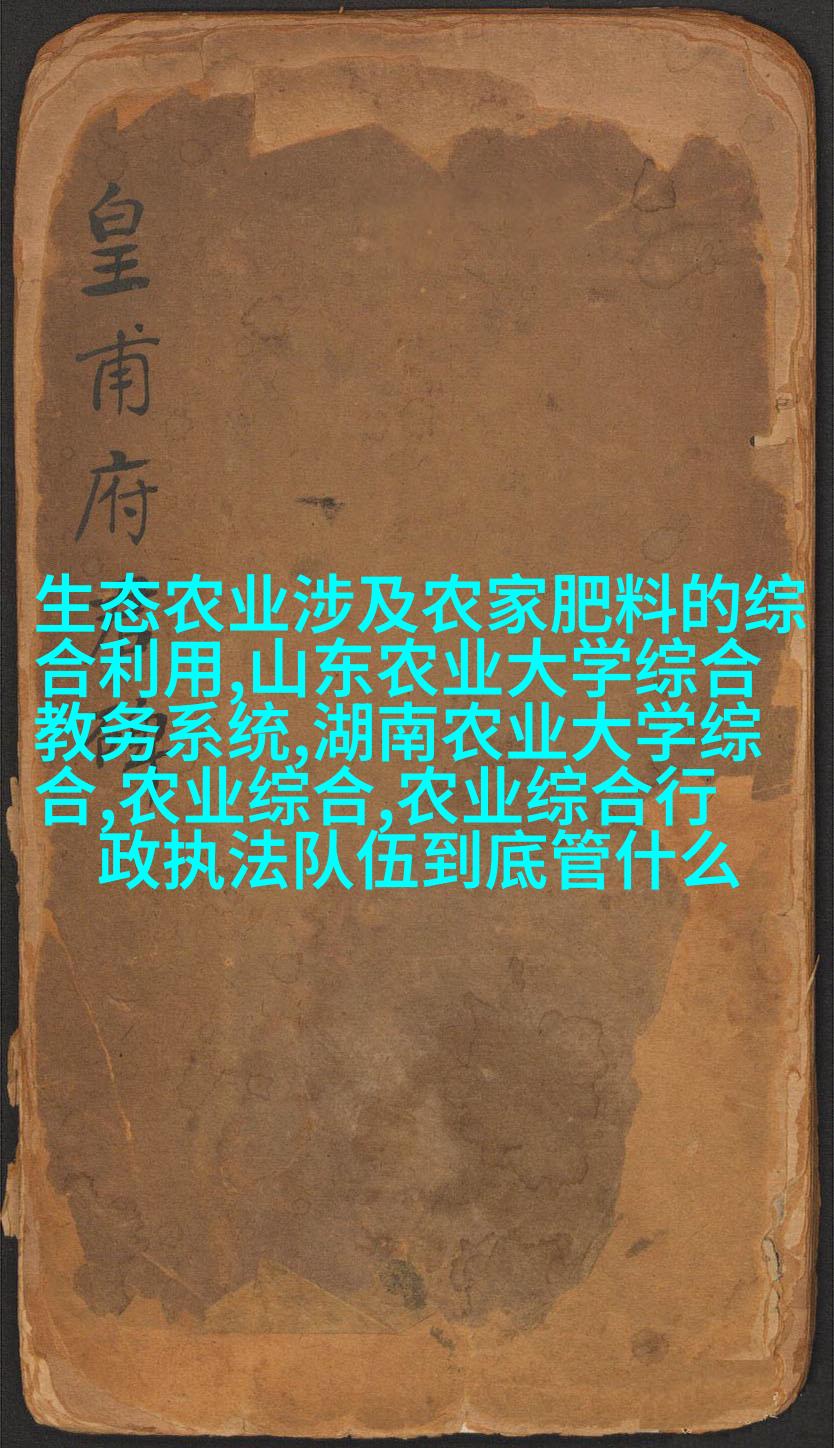 皇甫府君碑
生态农业涉及农家肥料的综
合利用,山东农业大学综合
教务系统,湖南农业大学综
合,农业综合,农业综合行
政执法队伍到底管什么